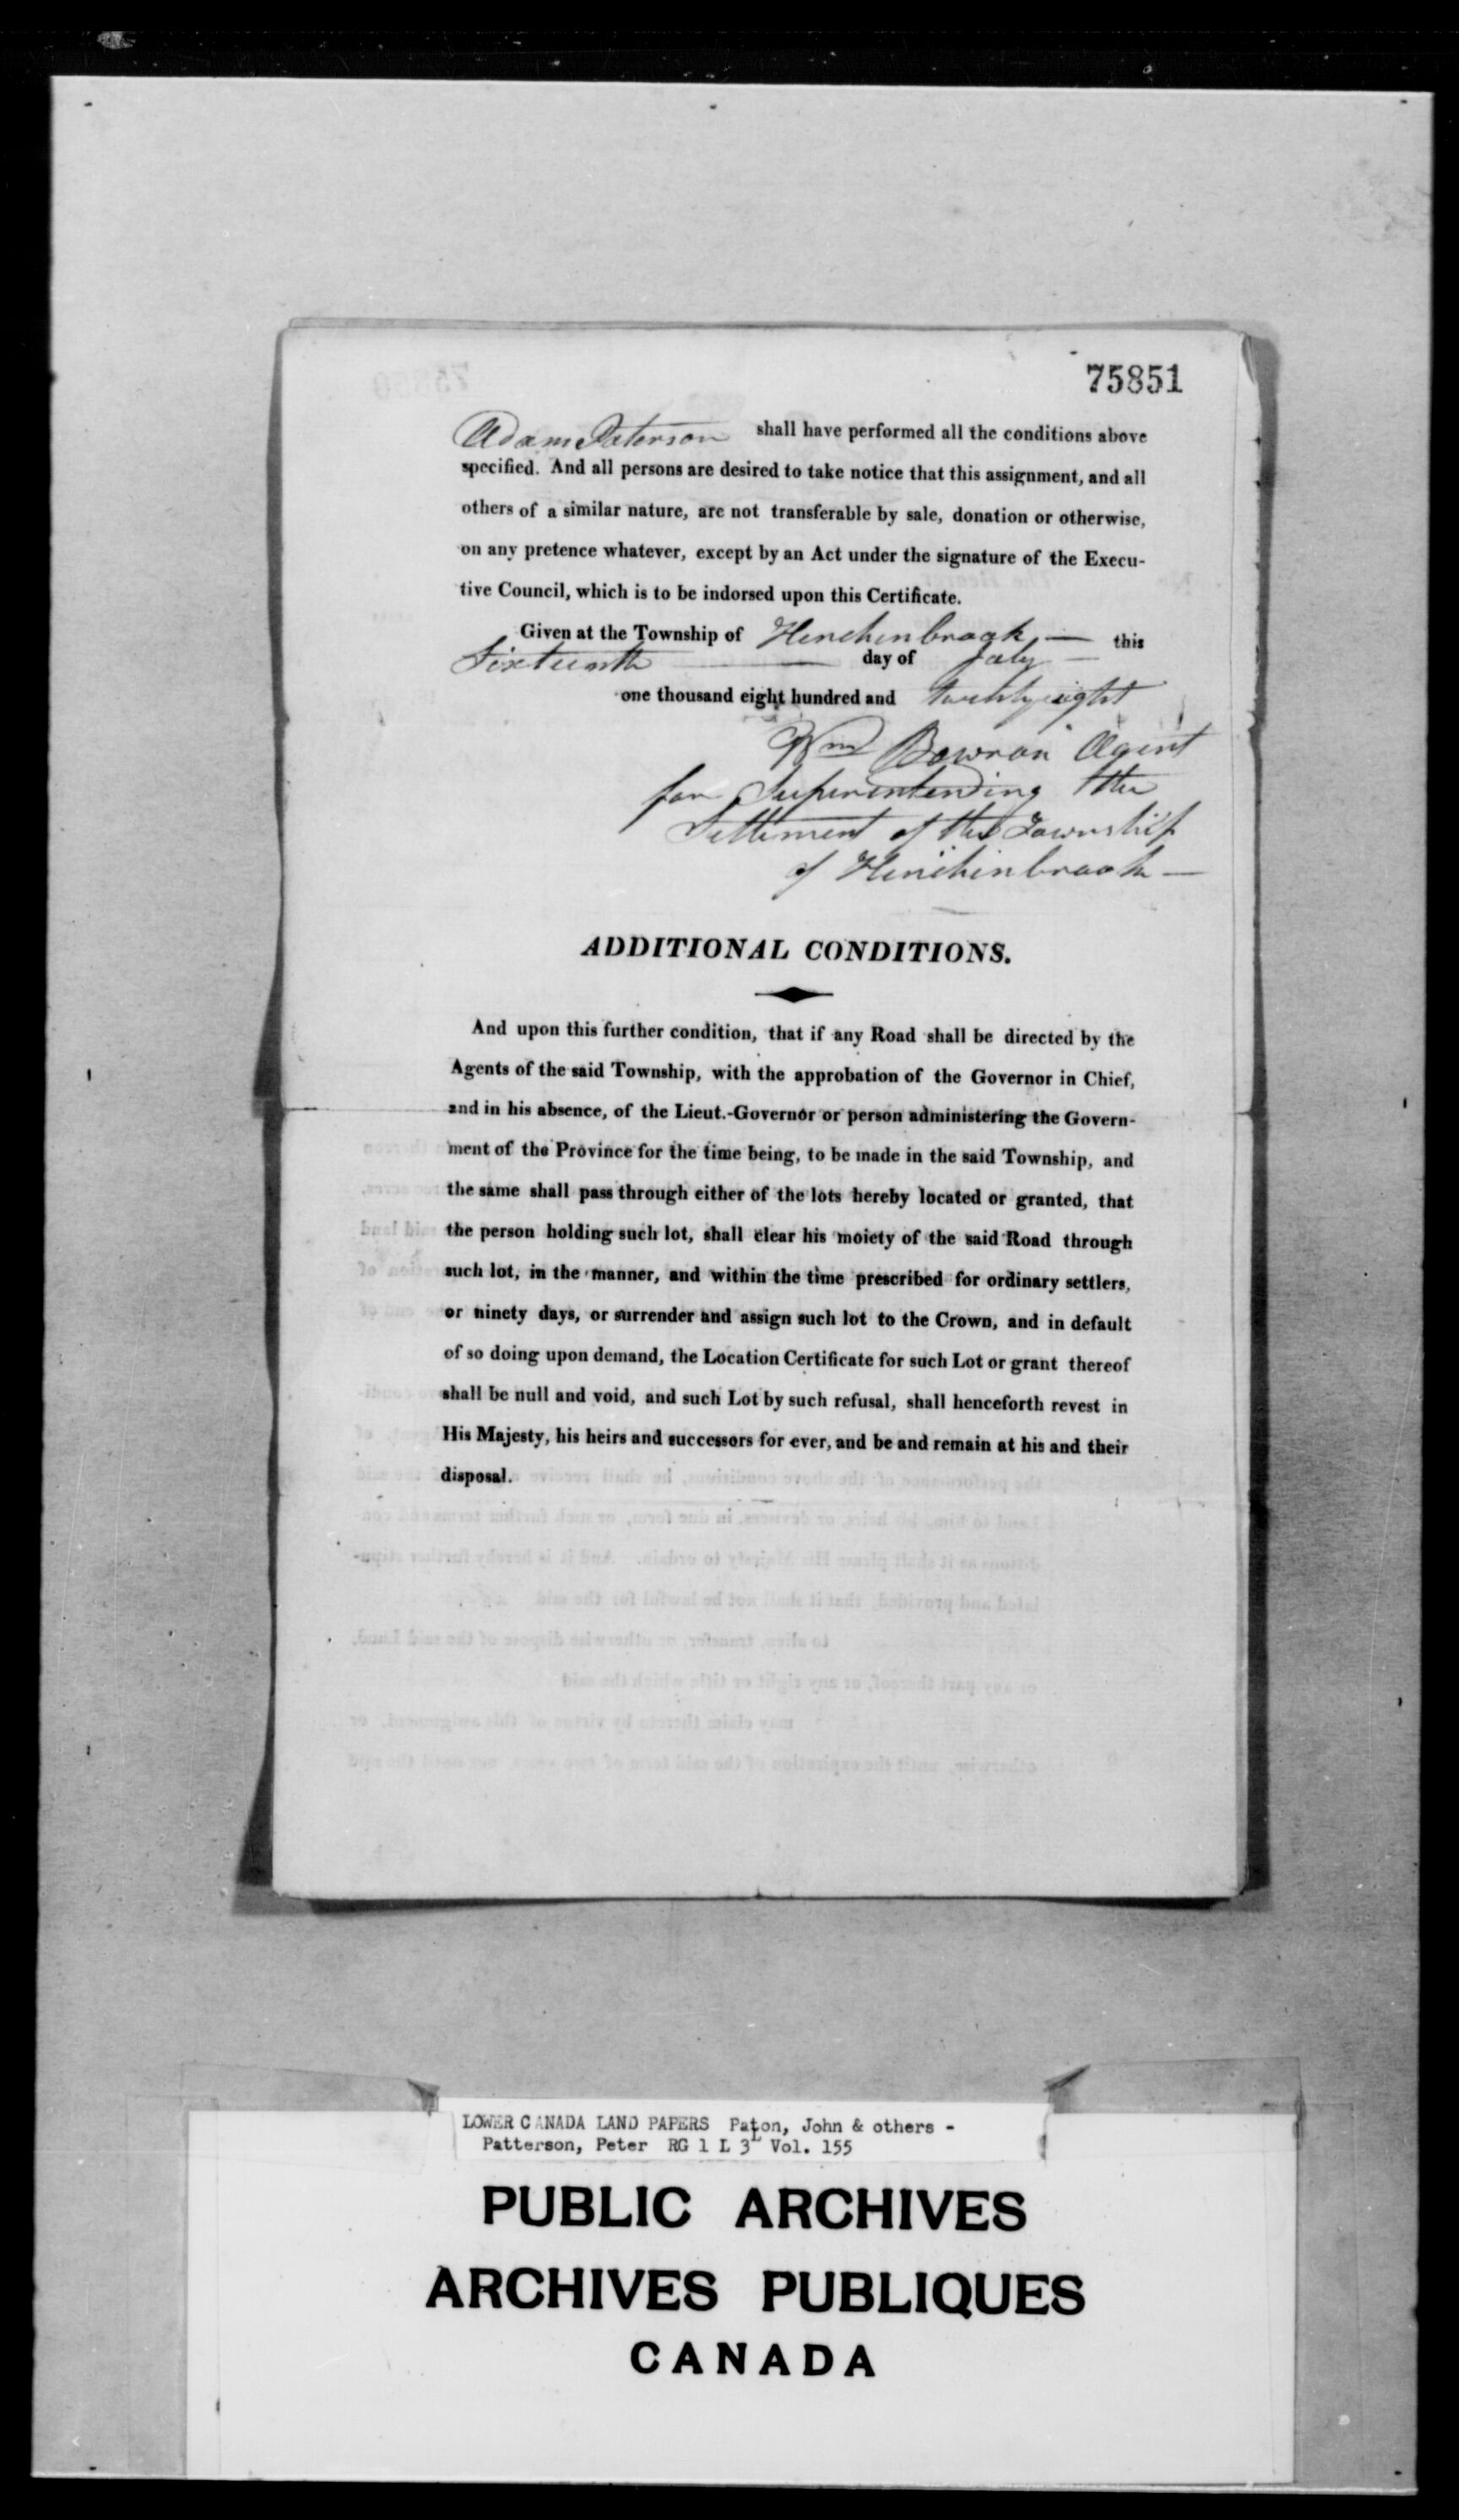 75851
Adam Paterson shall have performed all the conditions above
specified. And all persons are desired to take notice that this assignment, and all
others of a similar nature, are not transferable by sale, donation or otherwise,
on any pretence whatever, except by an Act under the signature of the Execu-
tive Council, which is to be indorsed upon this Certificate.
Given at the Township of Henchinbrook — this
Sixteenth — day of July —
one thousand eight hundred and twenty eight
Wm Bowron Agent
for Superintending the
Settlement of the Township
of Hinchinbrook —
ADDITIONAL CONDITIONS.
And upon this further condition, that if any Road shall be directed by the
Agents of the said Township, with the approbation of the Governor in Chief,
and in his absence, of the Lieut.-Governor or person administering the Govern-
ment of the Province for the time being, to be made in the said Township, and
the same shall pass through either of the lots hereby located or granted, that
the person holding such lot, shall clear his moiety of the said Road through
such lot, in the manner, and within the time prescribed for ordinary settlers,
or ninety days, or surrender and assign such lot to the Crown, and in default
of so doing upon demand, the Location Certificate for such Lot or grant thereof
shall be null and void, and such Lot by such refusal, shall henceforth revest in
His Majesty, his heirs and successors for ever, and be and remain at his and their
disposal.
LOWER CANADA LAND PAPERS Paton, John & others -
Patterson, Peter RG 1 L 3L Vol. 155
PUBLIC ARCHIVES
ARCHIVES PUBLIQUES
CANADA